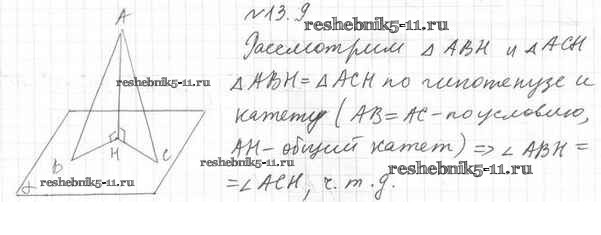 A
№13.9
reshebnik5-11.ru
Рассмотрим △ABH и △ACH
reshebnik5-11.ru
△ABH = △ACH по гипотенузе и
катету (AB = AC - по условию,
AH - общий катет) => ∠ABH =
B
H
C
reshebnik5-11.ru
reshebnik5-11.ru
= ∠ACH, ч.т.д.
α
reshebnik5-11.ru